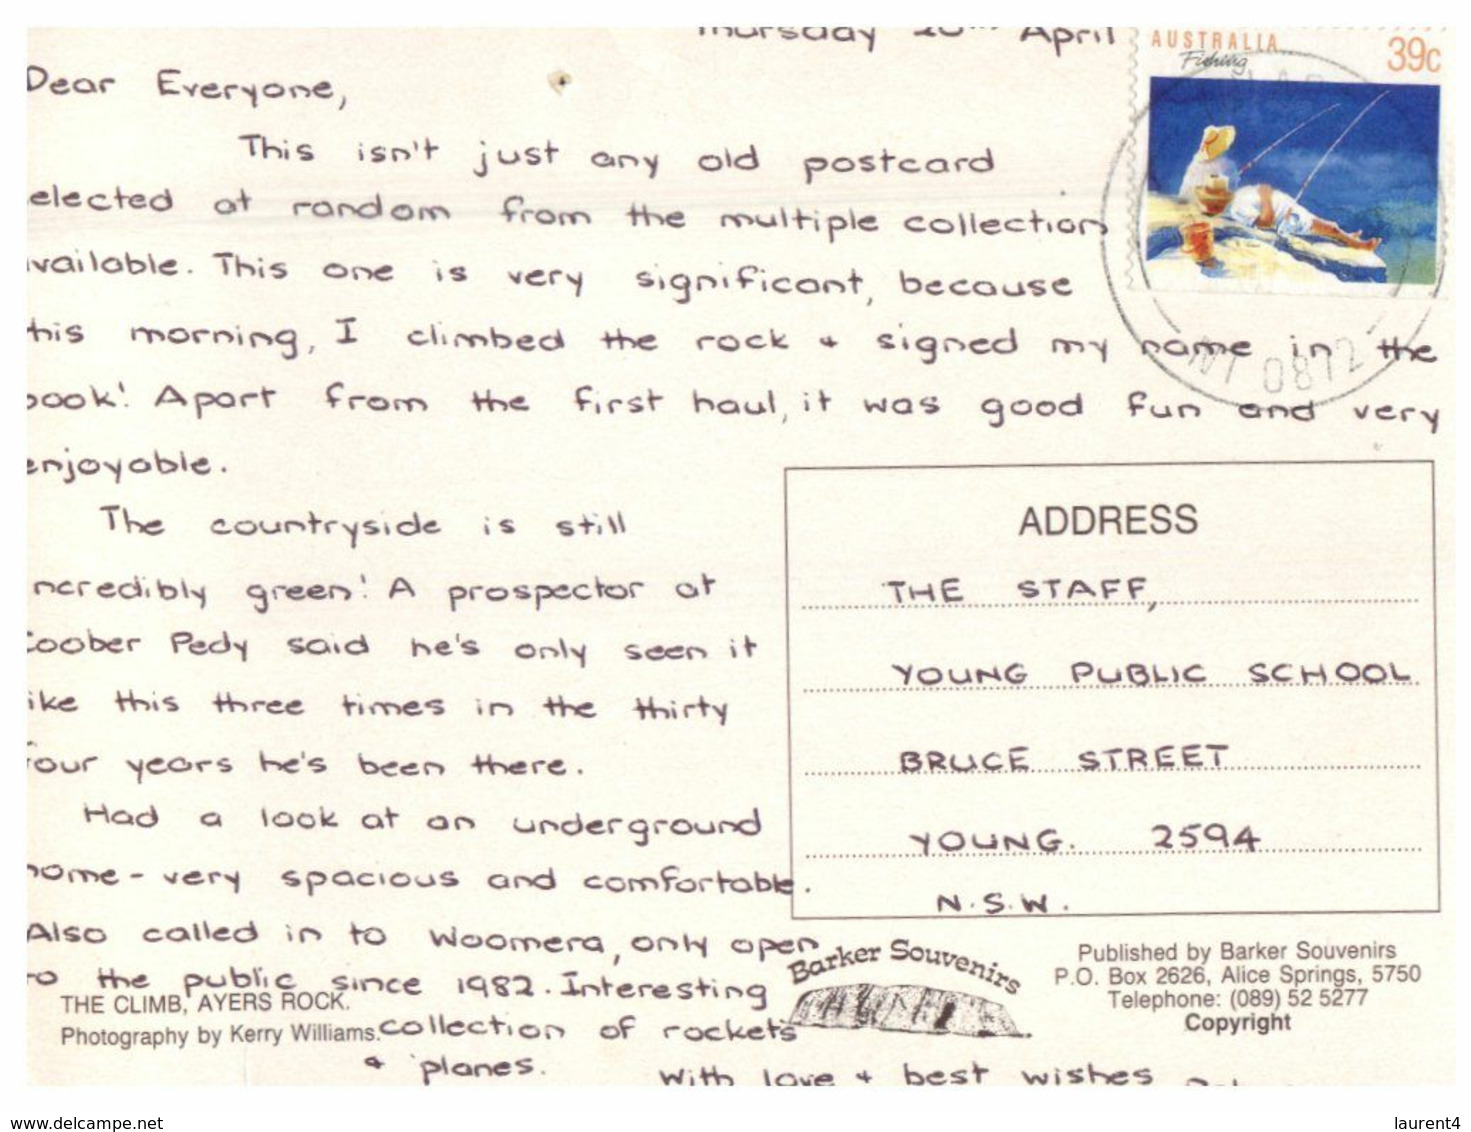 Thursday 20th April
Dear Everyone,
This isn't just any old postcard
elected at random from the multiple collection
vailable. This one is very significant, because
this morning, I climbed the rock + signed my name in the
book! Apart from the first haul, it was good fun and very
enjoyable.
The countryside is still
incredibly green! A prospector at
Coober Pedy said he's only seen it
like this three times in the thirty
four years he's been there.
Had a look at an underground
home - very spacious and comfortable.
Also called in to Woomera, only open
to the public since 1982. Interesting
collection of rockets
+ planes.
With love + best wishes
AUSTRALIA 39c
Fishing
NT 0872
ADDRESS
THE STAFF,
YOUNG PUBLIC SCHOOL
BRUCE STREET
YOUNG. 2594
N.S.W.
THE CLIMB, AYERS ROCK.
Photography by Kerry Williams.
Barker Souvenirs
Published by Barker Souvenirs
P.O. Box 2626, Alice Springs, 5750
Telephone: (089) 52 5277
Copyright
www.delcampe.net
laurent4